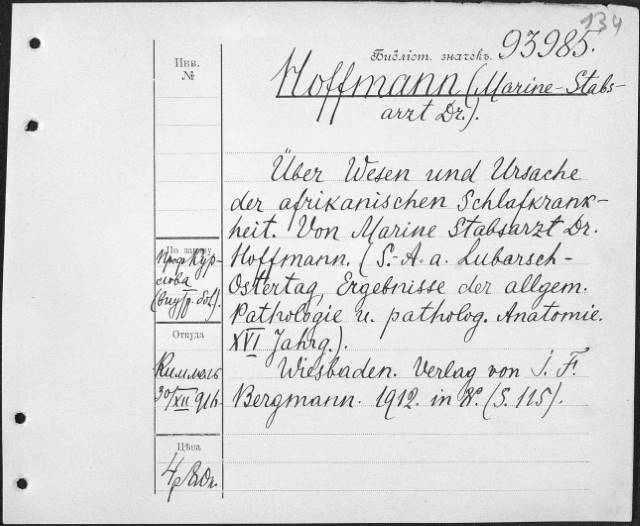 134
Инв.
№
Библіот. значекъ. 93985.
Hoffmann (Marine-Stabs-
arzt Dr.).
Über Wesen und Ursache
der afrikanischen Schlafkrank-
heit. Von Marine Stabsarzt Dr.
Hoffmann. (S.-A. a. Lubarsch-
Ostertag, Ergebnisse der allgem.
Pathologie u. patholog. Anatomie.
XVI Jahrg.).
Wiesbaden. Verlag von J. F.
Bergmann. 1912. in 8º. (S. 115).
По заказу
проф. Кур-
лова
(внутр. бол).
Откуда
Киммель
30/XII 91
Цѣна
4 р.